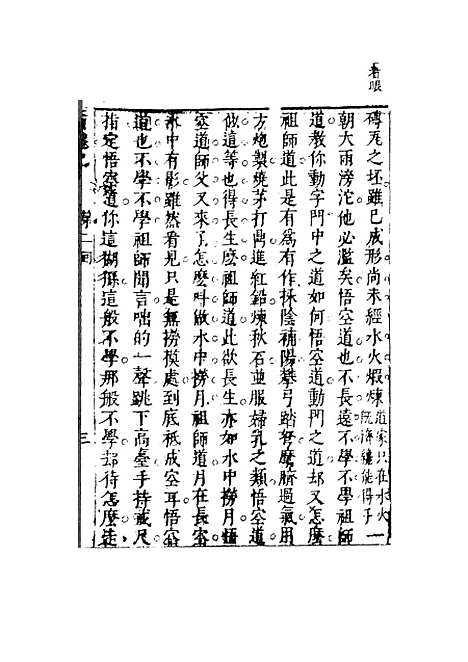 着眼
磚瓦之坯雖已成形尚未經水火煆煉
道家只在水火
既濟纔能得手
一
朝大雨滂沱他必濫矣悟空道也不長遠不學不學祖師
道教你動字門中之道如何悟空道動門之道却又怎麽
祖師道此是有爲有作採陰補陽攀弓踏弩摩臍過氣用
方炮製燒茅打鼎進紅鉛煉秋石並服婦乳之類悟空道
似這等也得長生麽祖師道此欲長生亦如水中撈月悟
空道師父又來了怎麽叫做水中撈月祖師道月在長空
水中有影雖然看見只是無撈摸處到底秪成空耳悟空
道也不學不學祖師聞言咄的一聲跳下高臺手持戒尺
指定悟空道你這猢猻這般不學那般不學却待怎麽走
第一回
三